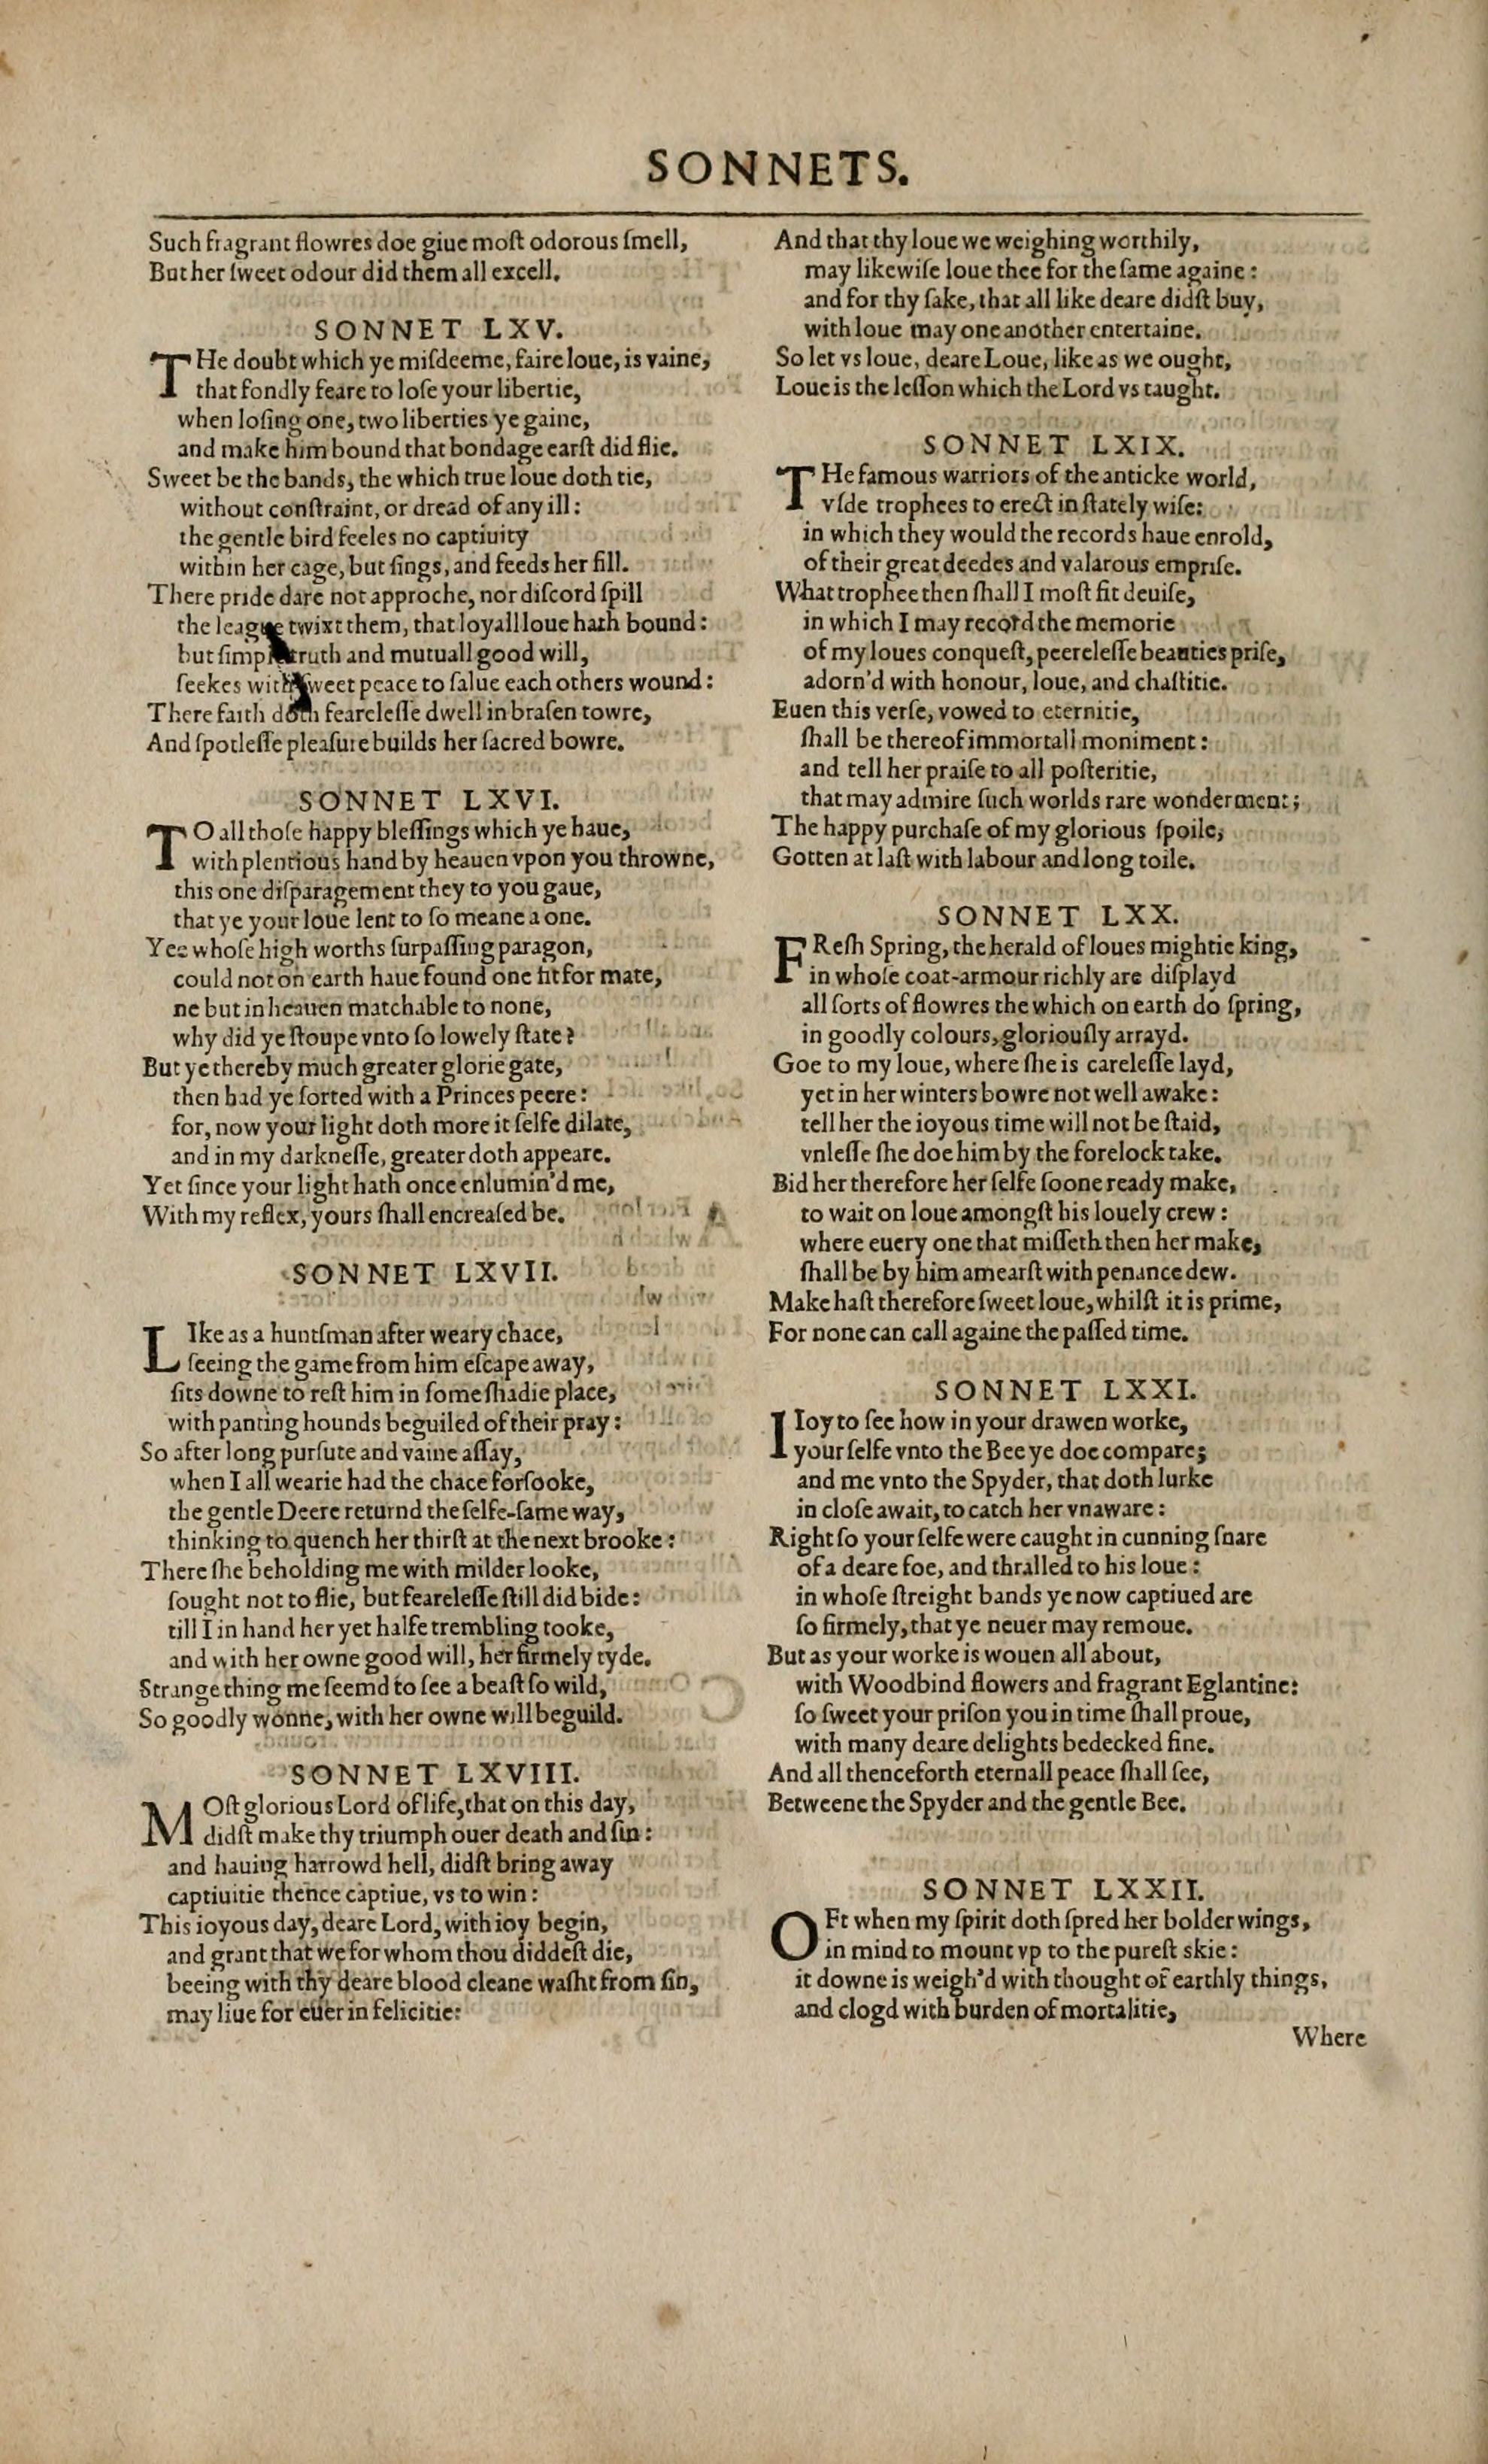 SONNETS.
Such fragrant flowres doe giue moſt odorous ſmell,
But her ſweet odour did them all excell.
SONNET LXV.
THe doubt which ye miſdeeme, faire loue, is vaine,
that fondly feare to loſe your libertie,
when loſing one, two liberties ye gaine,
and make him bound that bondage earſt did flie.
Sweet be the bands, the which true loue doth tie,
without conſtraint, or dread of any ill:
the gentle bird feeles no captiuity
within her cage, but ſings, and feeds her fill.
There pride dare not approche, nor diſcord ſpill
the league twixt them, that loyall loue hath bound:
but ſimple truth and mutuall good will,
ſeekes with ſweet peace to ſalue each others wound:
There faith doth feareleſſe dwell in braſen towre,
And ſpotleſſe pleaſure builds her ſacred bowre.
SONNET LXVI.
TO all thoſe happy bleſſings which ye haue,
with plentious hand by heauen vpon you throwne,
this one diſparagement they to you gaue,
that ye your loue lent to ſo meane a one.
Yee whoſe high worths ſurpaſſing paragon,
could not on earth haue found one fit for mate,
ne but in heauen matchable to none,
why did ye ſtoupe vnto ſo lowely ſtate?
But ye thereby much greater glorie gate,
then had ye ſorted with a Princes peere:
for, now your light doth more it ſelfe dilate,
and in my darkneſſe, greater doth appeare.
Yet ſince your light hath once enlumin'd me,
With my reflex, yours ſhall encreaſed be.
SONNET LXVII.
LIke as a huntſman after weary chace,
ſeeing the game from him eſcape away,
ſits downe to reſt him in ſome ſhadie place,
with panting hounds beguiled of their pray:
So after long purſute and vaine aſſay,
when I all wearie had the chace forſooke,
the gentle Deere returnd the ſelfe-ſame way,
thinking to quench her thirſt at the next brooke:
There ſhe beholding me with milder looke,
ſought not to flie, but feareleſſe ſtill did bide:
till I in hand her yet halfe trembling tooke,
and with her owne good will, her firmely tyde.
Strange thing me ſeemd to ſee a beaſt ſo wild,
So goodly wonne, with her owne will beguild.
SONNET LXVIII.
MOſt glorious Lord of life, that on this day,
didſt make thy triumph ouer death and ſin:
and hauing harrowd hell, didſt bring away
captiuitie thence captiue, vs to win:
This ioyous day, deare Lord, with ioy begin,
and grant that we for whom thou diddeſt die,
beeing with thy deare blood cleane waſht from ſin,
may liue for euer in felicitie:
And that thy loue we weighing worthily,
may likewiſe loue thee for the ſame againe:
and for thy ſake, that all like deare didſt buy,
with loue may one another entertaine.
So let vs loue, deare Loue, like as we ought,
Loue is the leſſon which the Lord vs taught.
SONNET LXIX.
THe famous warriors of the anticke world,
vſde trophees to erect in ſtately wiſe:
in which they would the records haue enrold,
of their great deedes and valarous empriſe.
What trophee then ſhall I moſt fit deuiſe,
in which I may record the memorie
of my loues conqueſt, peereleſſe beauties priſe,
adorn'd with honour, loue, and chaſtitie.
Euen this verſe, vowed to eternitie,
ſhall be thereof immortall moniment:
and tell her praiſe to all poſteritie,
that may admire ſuch worlds rare wonderment;
The happy purchaſe of my glorious ſpoile,
Gotten at laſt with labour and long toile.
SONNET LXX.
FReſh Spring, the herald of loues mightie king,
in whoſe coat-armour richly are diſplayd
all ſorts of flowres the which on earth do ſpring,
in goodly colours, gloriouſly arrayd.
Goe to my loue, where ſhe is careleſſe layd,
yet in her winters bowre not well awake:
tell her the ioyous time will not be ſtaid,
vnleſſe ſhe doe him by the forelock take.
Bid her therefore her ſelfe ſoone ready make,
to wait on loue amongſt his louely crew:
where euery one that miſſeth then her make,
ſhall be by him amearſt with penance dew.
Make haſt therefore ſweet loue, whilſt it is prime,
For none can call againe the paſſed time.
SONNET LXXI.
I Ioy to ſee how in your drawen worke,
your ſelfe vnto the Bee ye doe compare;
and me vnto the Spyder, that doth lurke
in cloſe await, to catch her vnaware:
Right ſo your ſelfe were caught in cunning ſnare
of a deare foe, and thralled to his loue:
in whoſe ſtreight bands ye now captiued are
ſo firmely, that ye neuer may remoue.
But as your worke is wouen all about,
with Woodbind flowers and fragrant Eglantine:
ſo ſweet your priſon you in time ſhall proue,
with many deare delights bedecked fine.
And all thenceforth eternall peace ſhall ſee,
Betweene the Spyder and the gentle Bee.
SONNET LXXII.
OFt when my ſpirit doth ſpred her bolder wings,
in mind to mount vp to the pureſt skie:
it downe is weigh'd with thought of earthly things,
and clogd with burden of mortalitie,
Where